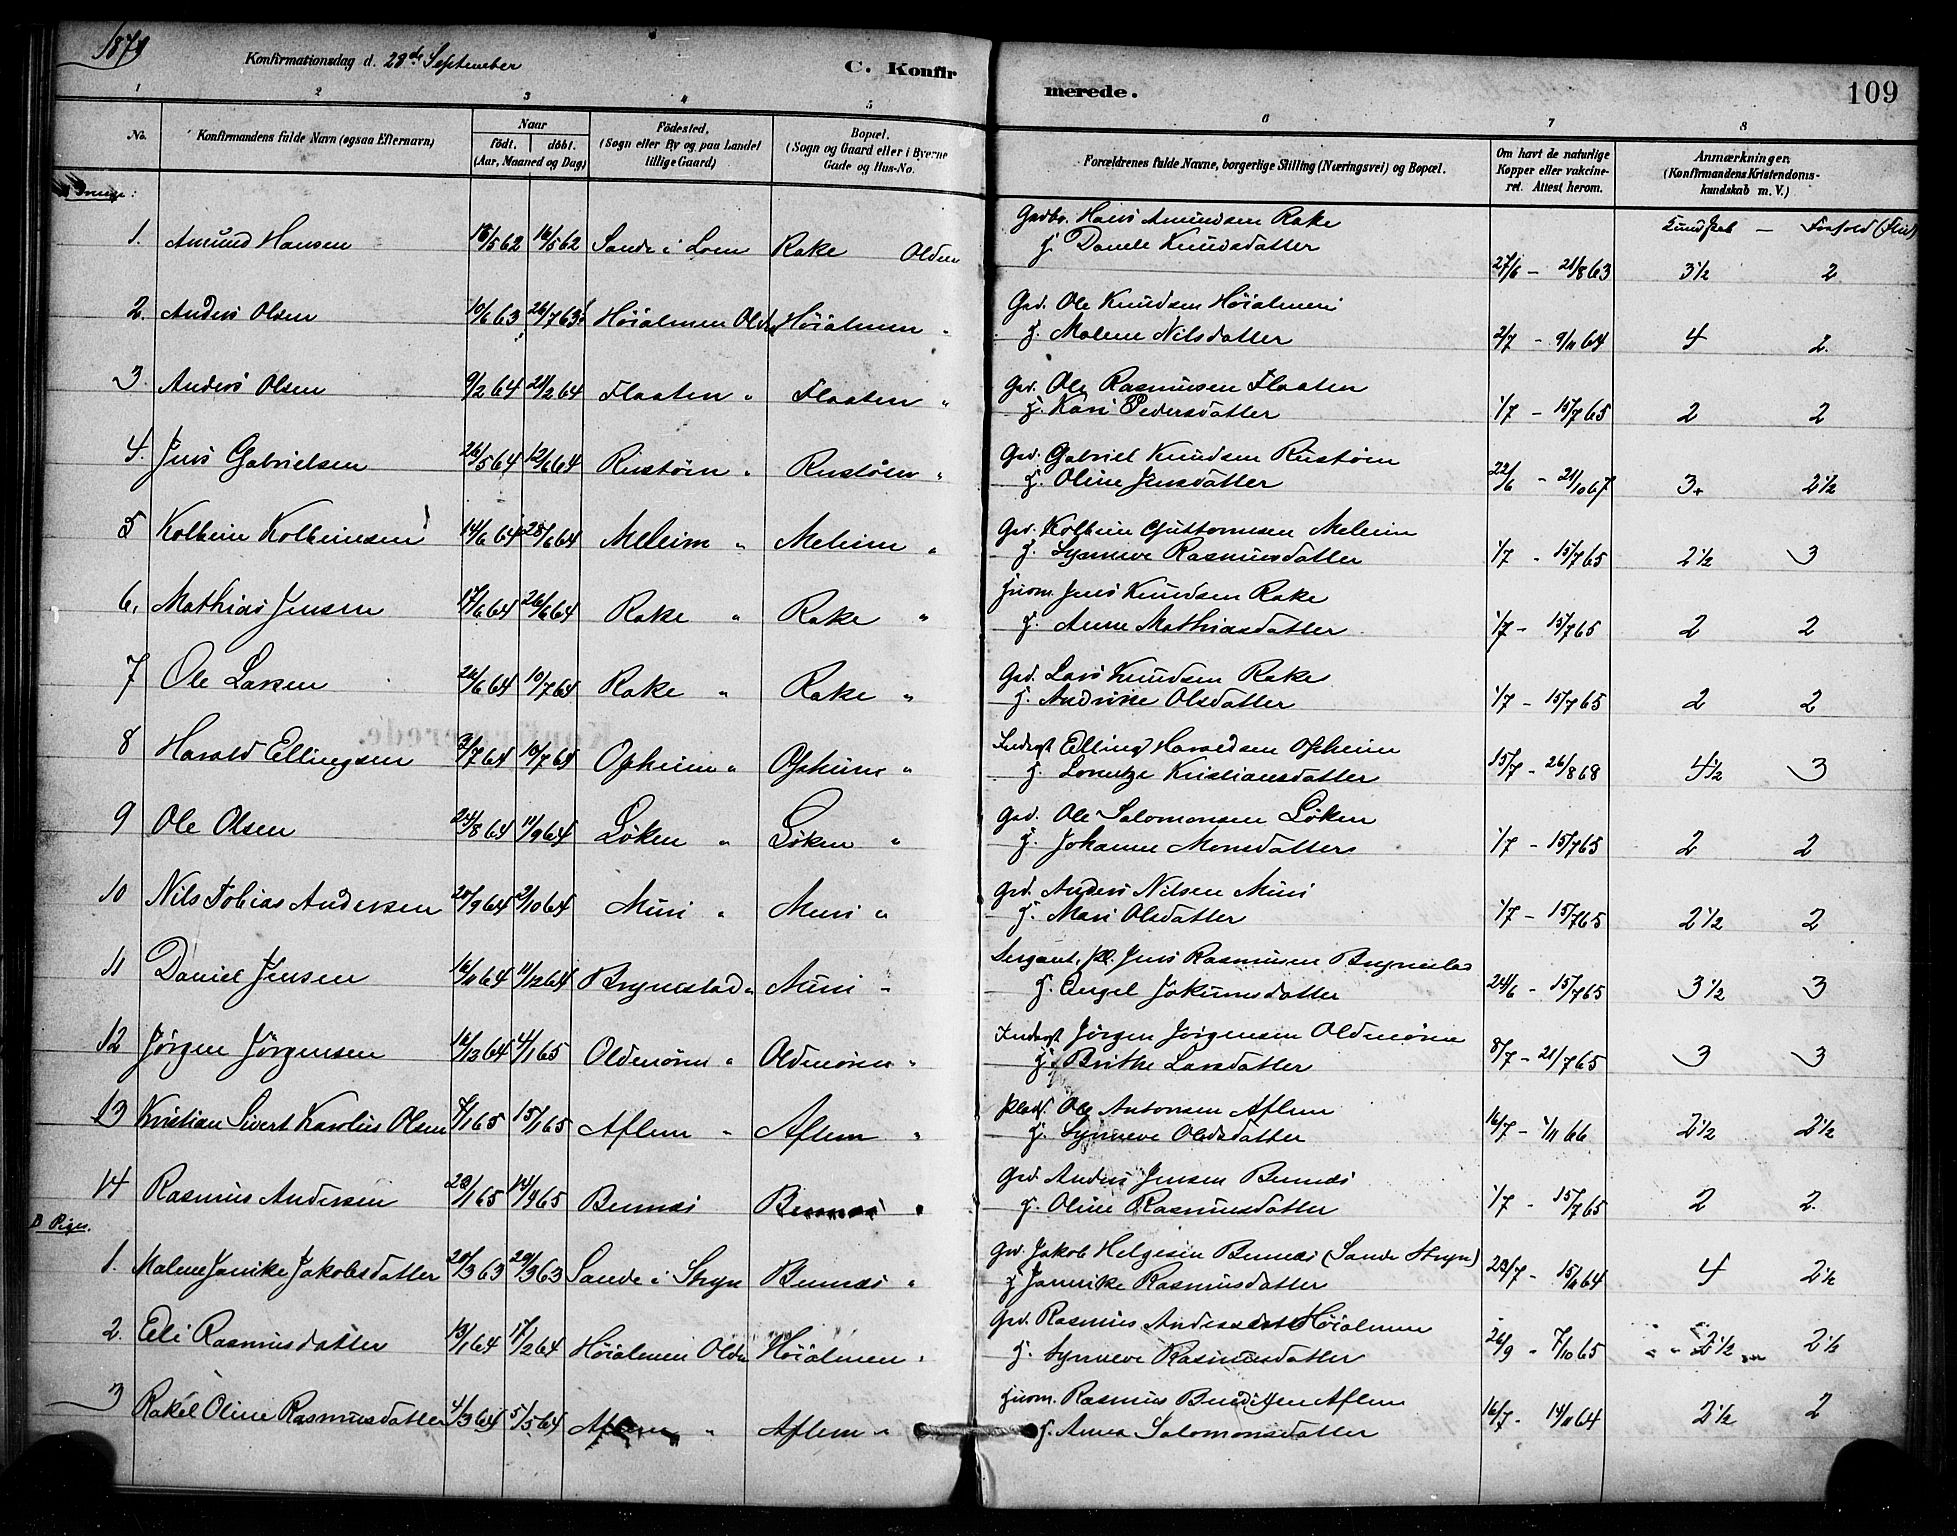 1879
Konfirmationsdag d. 28de September
C. Konfir
merede.
109
1 2 3 4 5 6 7 8
No.
Konfirmandens fulde Navn (ogsaa Efternavn)
Naar
födt. döbt.
(Aar, Maaned og Dag)
Födested,
(Sogn eller By og paa Landet
tillige Gaard)
Bopæl.
(Sogn og Gaard eller i Byerne
Gade og Hus-No.
Forældrenes fulde Navne, borgerlige Stilling (Næringsvei) og Bopæl.
Om havt de naturlige
Kopper eller vakcine-
ret. Attest herom.
Anmærkninger,
(Konfirmandens Kristendoms-
kundskab m. V.)
Drenge:
Kundskab — Forhold (Flid)
Gadbr. Hans Amundsen Rake
1. Amund Hansen 16/5 62 Sande i Loen Rake Olden
H. Danele Knudsdatter 27/6 - 21/8 63 3 1/2 2
Gad. Ole Knudsen Höialmen
2. Anders Olsen 10/6 63 26/7 63 Höialmen Olden Höialmen "
H. Malene Nilsdatter 2/7 - 9/11 64 4 2.
Gad. Ole Rasmusen Flaaten
3. Anders Olsen 9/2 64 21/2 64 Flaaten " Flaaten "
H. Kari Pedersdatter 1/7 - 15/7 65 2 2
Gad. Gabriel Knudsen Rustöen
4. Jens Gabrielsen 26/5 64 12/6 64 Rustöen " Rustöen "
H. Oline Jensdatter 22/6 - 21/10 67 3+ 2 1/2
Gad. Kolbein Guttormsen Meleim
5 Kolbein Kolbeinsen 14/6 64 25/6 64 Meleim " Meleim "
H. Synneve Rasmusdatter 1/7 - 15/7 65 2 1/2 3
Huom. Jens Knudsen Rake
6. Mathias Jensen 17/6 64 26/6 64 Rake " Rake "
H. Anne Mathiasdatter 1/7 - 15/7 65 2 2
Gad. Lars Knudsen Rake
7 Ole Larsen 22/6 64 10/7 64 Rake " Rake "
H. Andrine Olsdatter 1/7 - 15/7 65 2 2
Inderst Elling Haraldsen Opheim
8 Harald Ellingsen 3/7 64 10/7 64 Opheim " Opheim "
H. Lorentze Kristiansdatter 15/7 - 26/8 68 4 1/2 3
Gad. Ole Salomonsen Löken
9 Ole Olsen 24/8 64 11/9 64 Löken " Löken "
H. Johanne Monsdatter 1/7 - 15/7 65 2 2
Grd. Anders Nilsen Muri
10 Nils Tobias Andersen 20/9 64 2/10 64 Muri " Muri "
H. Mari Olsdatter 1/7 - 15/7 65 2 1/2 2
Sergant, pl. Jens Rasmusen Brynestad
11 Daniel Jensen 16/11 64 11/12 64 Brynestad " Muri "
H. Engel Jokumsdatter 24/6 - 15/7 65 3 1/2 3
Inderst Jörgen Jörgensen Oldenören
12 Jörgen Jörgensen 16/12 64 4/1 65 Oldenören " Oldenören "
H. Brithe Larsdatter 8/7 - 21/7 65 3 3
Plads. Ole Antonsen Aflem
13 Kristian Sivert Karolius Olsen 4/1 65 15/1 65 Aflem " Aflem "
H. Synneve Olsdatter 16/7 - 1/11 66 2 1/2 2 1/2
Grd. Anders Jensen Bennæs
14 Rasmus Andersen 22/1 65 Bennæs Bennæs "
H. Oline Rasmusdatter 1/7 - 15/7 65 2 2.
Piger.
Grd. Jakob Helgesen Bennæs (Sande Stryn)
1. Malene Janike Jakobsdatter 20/3 63 29/3 63 Sande i Stryn Bennæs "
H. Jannike Rasmusdatter 22/7 - 15/11 64 4 2 1/2
Grd. Rasmus Andersen Höialmen
2. Eli Rasmusdatter 13/1 64 17/2 64 Höialmen Olden Höialmen "
H. Synneve Rasmusdatter 26/9 - 7/10 65 2 1/2 2 1/2
Huom. Rasmus Bendixen Aflem
3 Rakel Oline Rasmusdatter 4/3 64 5/5 64 Aflem " Aflem "
H. Anna Salomonsdatter 16/7 - 14/11 64 2 1/2 2